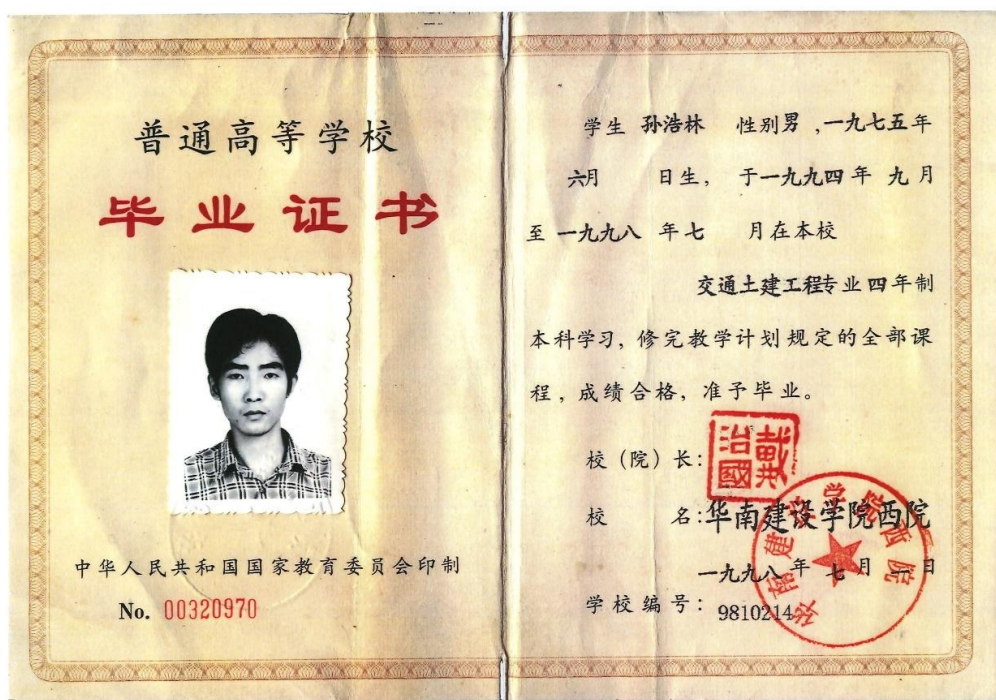 普通高等学校
毕业证书
中华人民共和国国家教育委员会印制
No. 00320970
学生 孙浩林 性别 男 ,一九七五年
六月 日生, 于一九九四年 九月
至 一九九八 年七 月在本校
交通土建工程专业 四年制
本科学习, 修完教学计划规定的全部课
程, 成绩合格, 准予毕业。
校(院)长:
戴治國
校 名:华南建设学院西院
华南建设学院西院
一九九八年 七月 一日
学校编号: 9810214